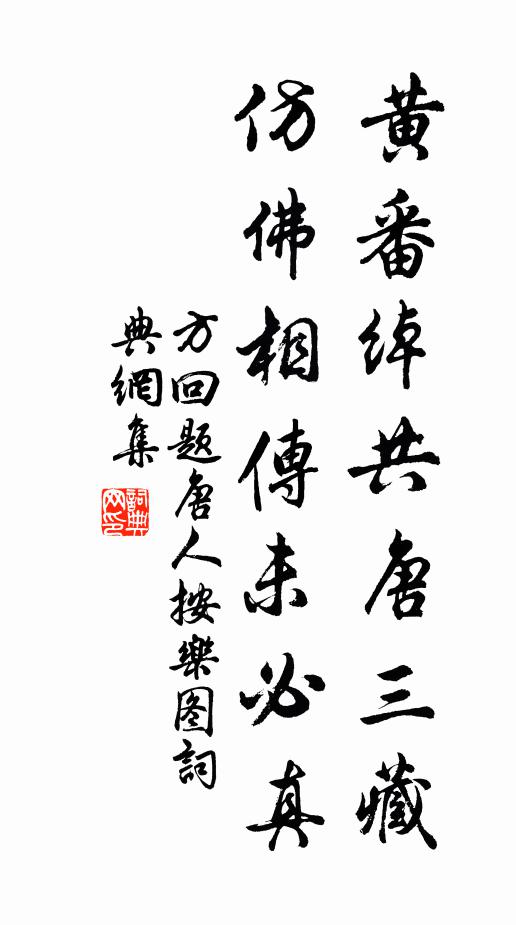 黄番绰共唐三藏
仿佛相傳未必真
方回题唐人按樂图詞
典網集
詞典网印